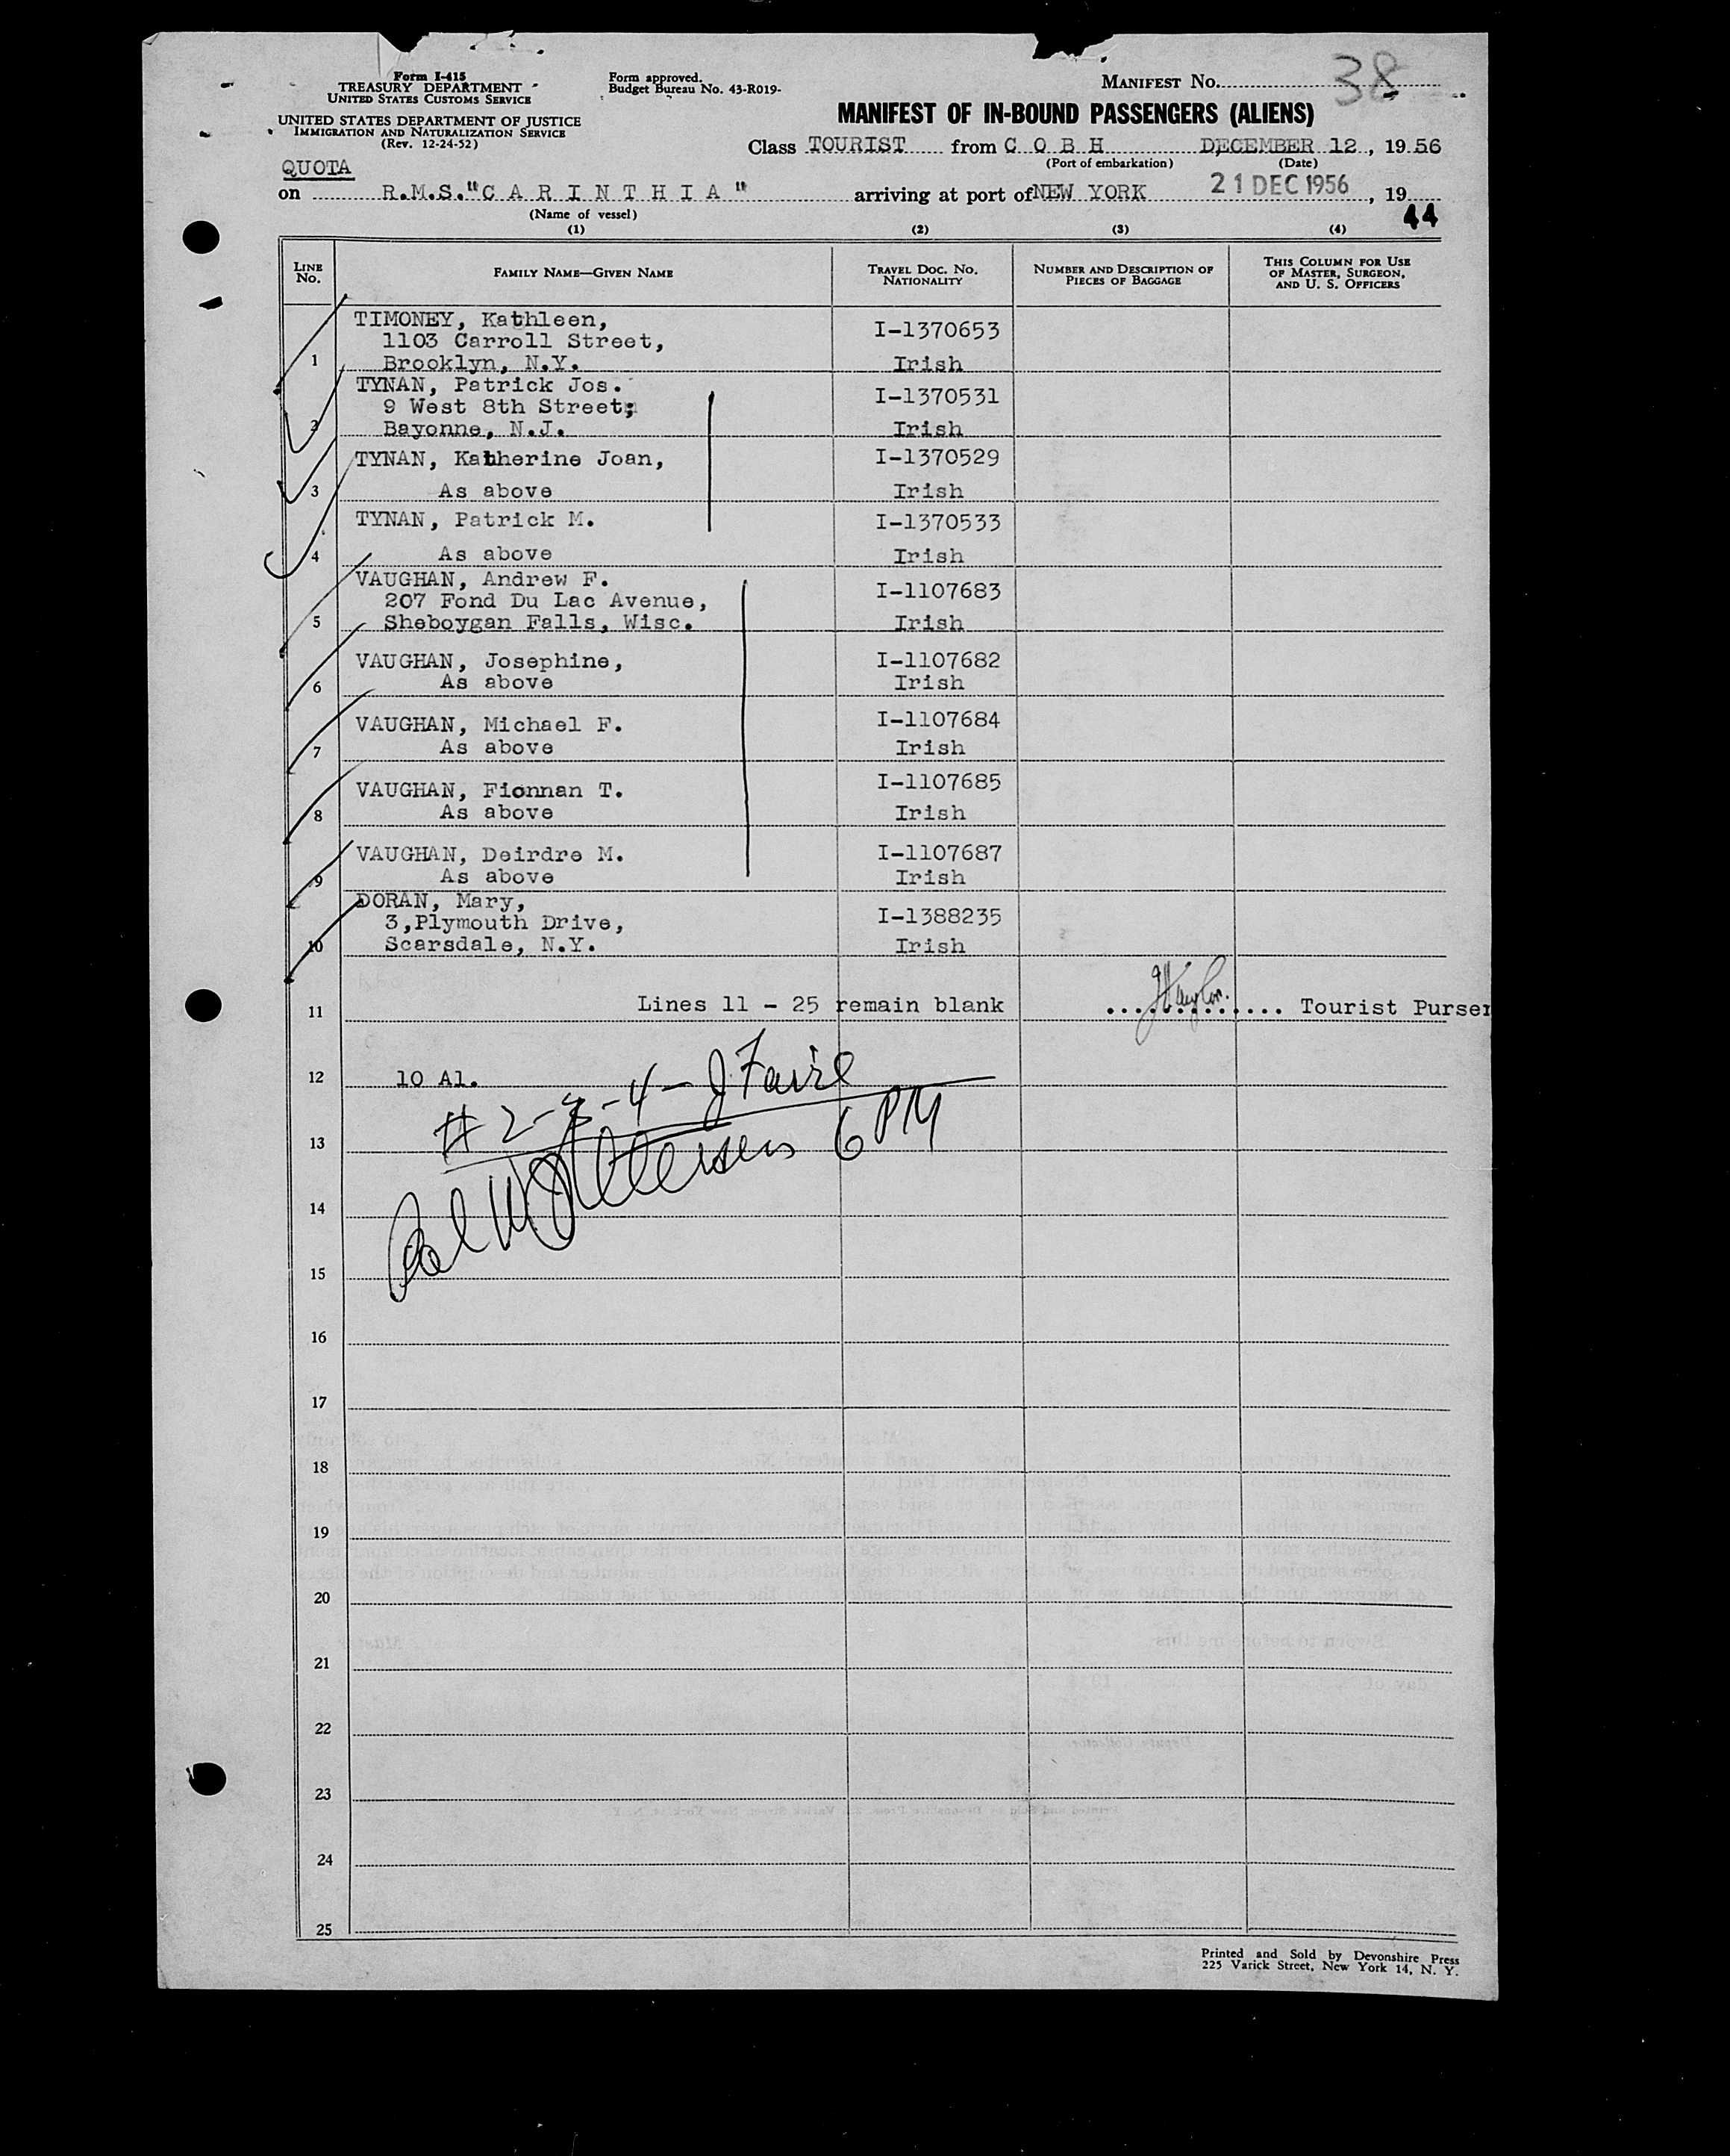 Form I-415
TREASURY DEPARTMENT
UNITED STATES CUSTOMS SERVICE
UNITED STATES DEPARTMENT OF JUSTICE
IMMIGRATION AND NATURALIZATION SERVICE
(Rev. 12-24-52)
Form approved.
Budget Bureau No. 43-R019-
MANIFEST NO. 38
MANIFEST OF IN-BOUND PASSENGERS (ALIENS)
Class TOURIST from C O B H DECEMBER 12, 1956
(Port of embarkation) (Date)
QUOTA
on R.M.S."C A R I N T H I A" arriving at port of NEW YORK 21 DEC 1956, 19
(Name of vessel)
44
(1) (2) (3) (4)
LINE NO. FAMILY NAME—GIVEN NAME TRAVEL DOC. NO. NATIONALITY NUMBER AND DESCRIPTION OF PIECES OF BAGGAGE THIS COLUMN FOR USE OF MASTER, SURGEON, AND U. S. OFFICERS
TIMONEY, Kathleen, I-1370653
1103 Carroll Street,
1 Brooklyn, N.Y. Irish
TYNAN, Patrick Jos. I-1370531
9 West 8th Street;
2 Bayonne, N.J. Irish
TYNAN, Katherine Joan, I-1370529
3 As above Irish
TYNAN, Patrick M. I-1370533
4 As above Irish
VAUGHAN, Andrew F. I-1107683
207 Fond Du Lac Avenue,
5 Sheboygan Falls, Wisc. Irish
VAUGHAN, Josephine, I-1107682
6 As above Irish
VAUGHAN, Michael F. I-1107684
7 As above Irish
VAUGHAN, Fionnan T. I-1107685
8 As above Irish
VAUGHAN, Deirdre M. I-1107687
9 As above Irish
DORAN, Mary, I-1388235
3,Plymouth Drive,
10 Scarsdale, N.Y. Irish
11 Lines 11 - 25 remain blank Tourist Purser
12 10 Al.
#2-3-4-
13 6 PM
14
15
16
17
18
19
20
21
22
23
24
25
Printed and Sold by Devonshire Press
225 Varick Street, New York 14, N. Y.